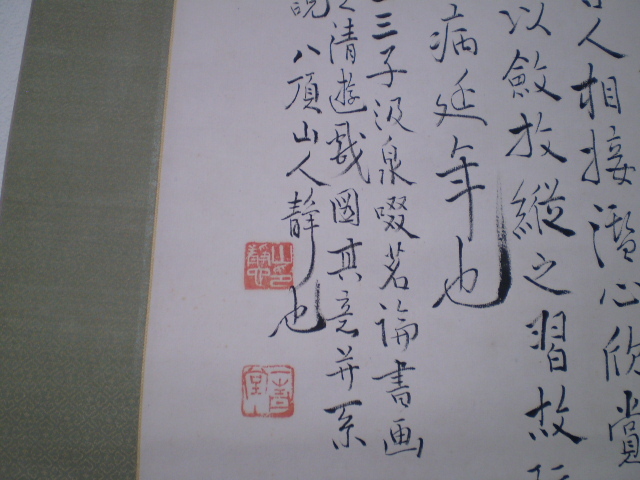 人相接濡心欣賞
以斂放縱之習故
病延年也
三子汲泉啜茗論書画
清遊戲圖其意并系
八頂山人静也